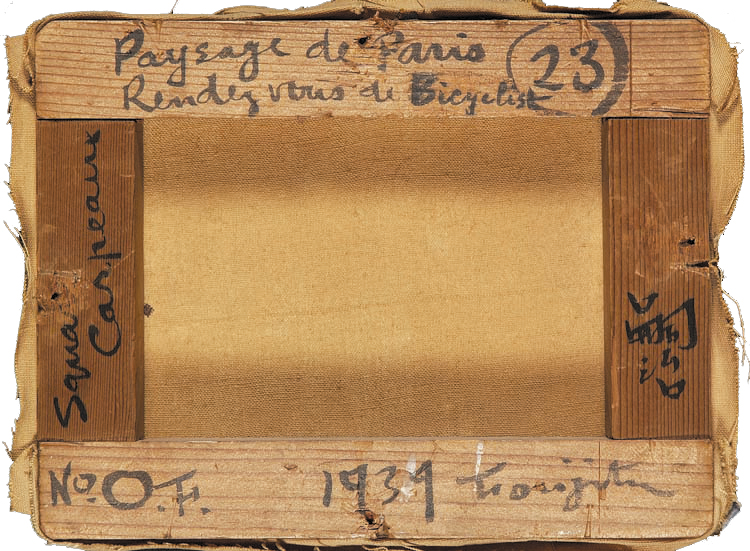 Paysage de Paris
Rendez vous de Bicyclist
23
Squa
Carpeaux
嗣治
No. O.F.
1939 Foujita